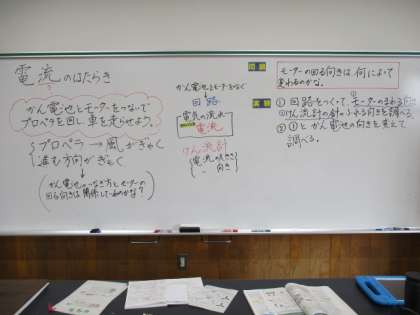 電流のはたらき
?
かん電池とモーターをつないで
プロペラを回し車を走らせよう。
プロペラ → 風がぎゃく
進む方向がぎゃく
かん電池のつなぎ方とモーターの
回る向きは関係しているのかな?
かん電池とモーターをつなぐ
回路
電気の流れ
電流
けん流計
電流の強さ
〃 向き
問題
モーターの回る向きは、何によって
変わるのかな。
実験
① 回路をつくって、モーターのまわる向き
けん流計の針のふれる向きを調べる。
② ①とかん電池の向きを変えて
調べる。